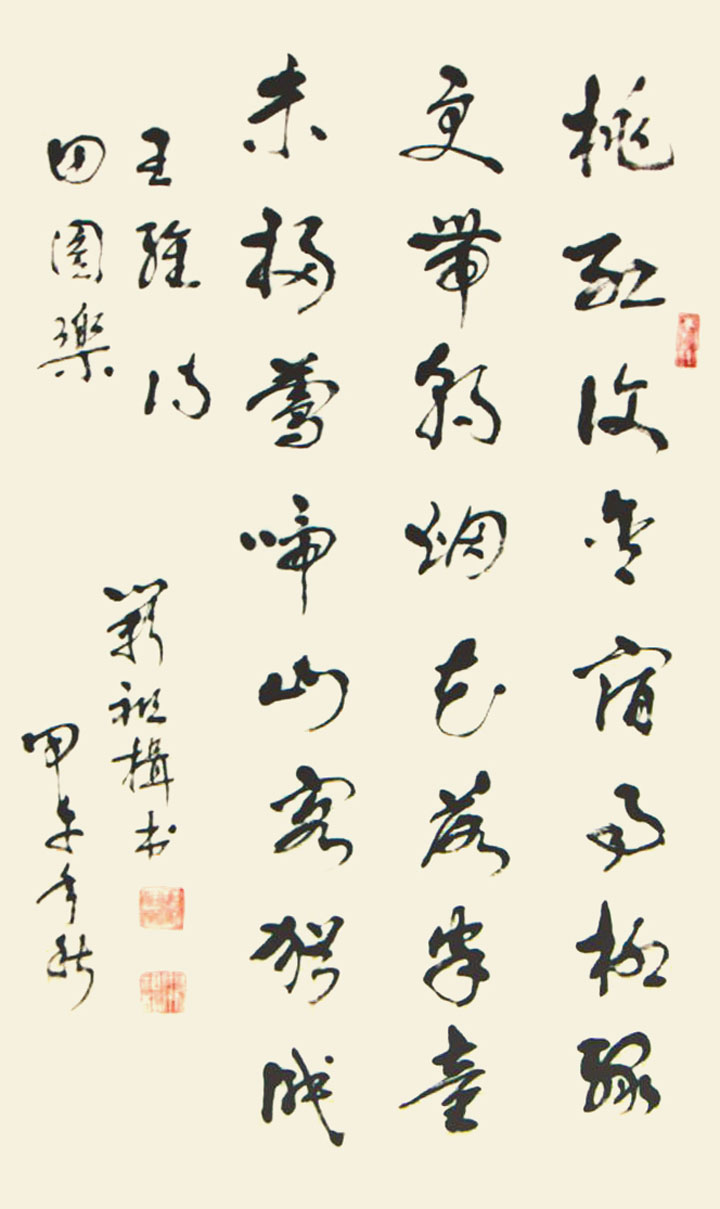 桃紅復含宿雨柳綠
更帶朝烟花落家童
未掃鶯啼山客猶眠
王維詩
田園樂
祖楫书
甲午年秋